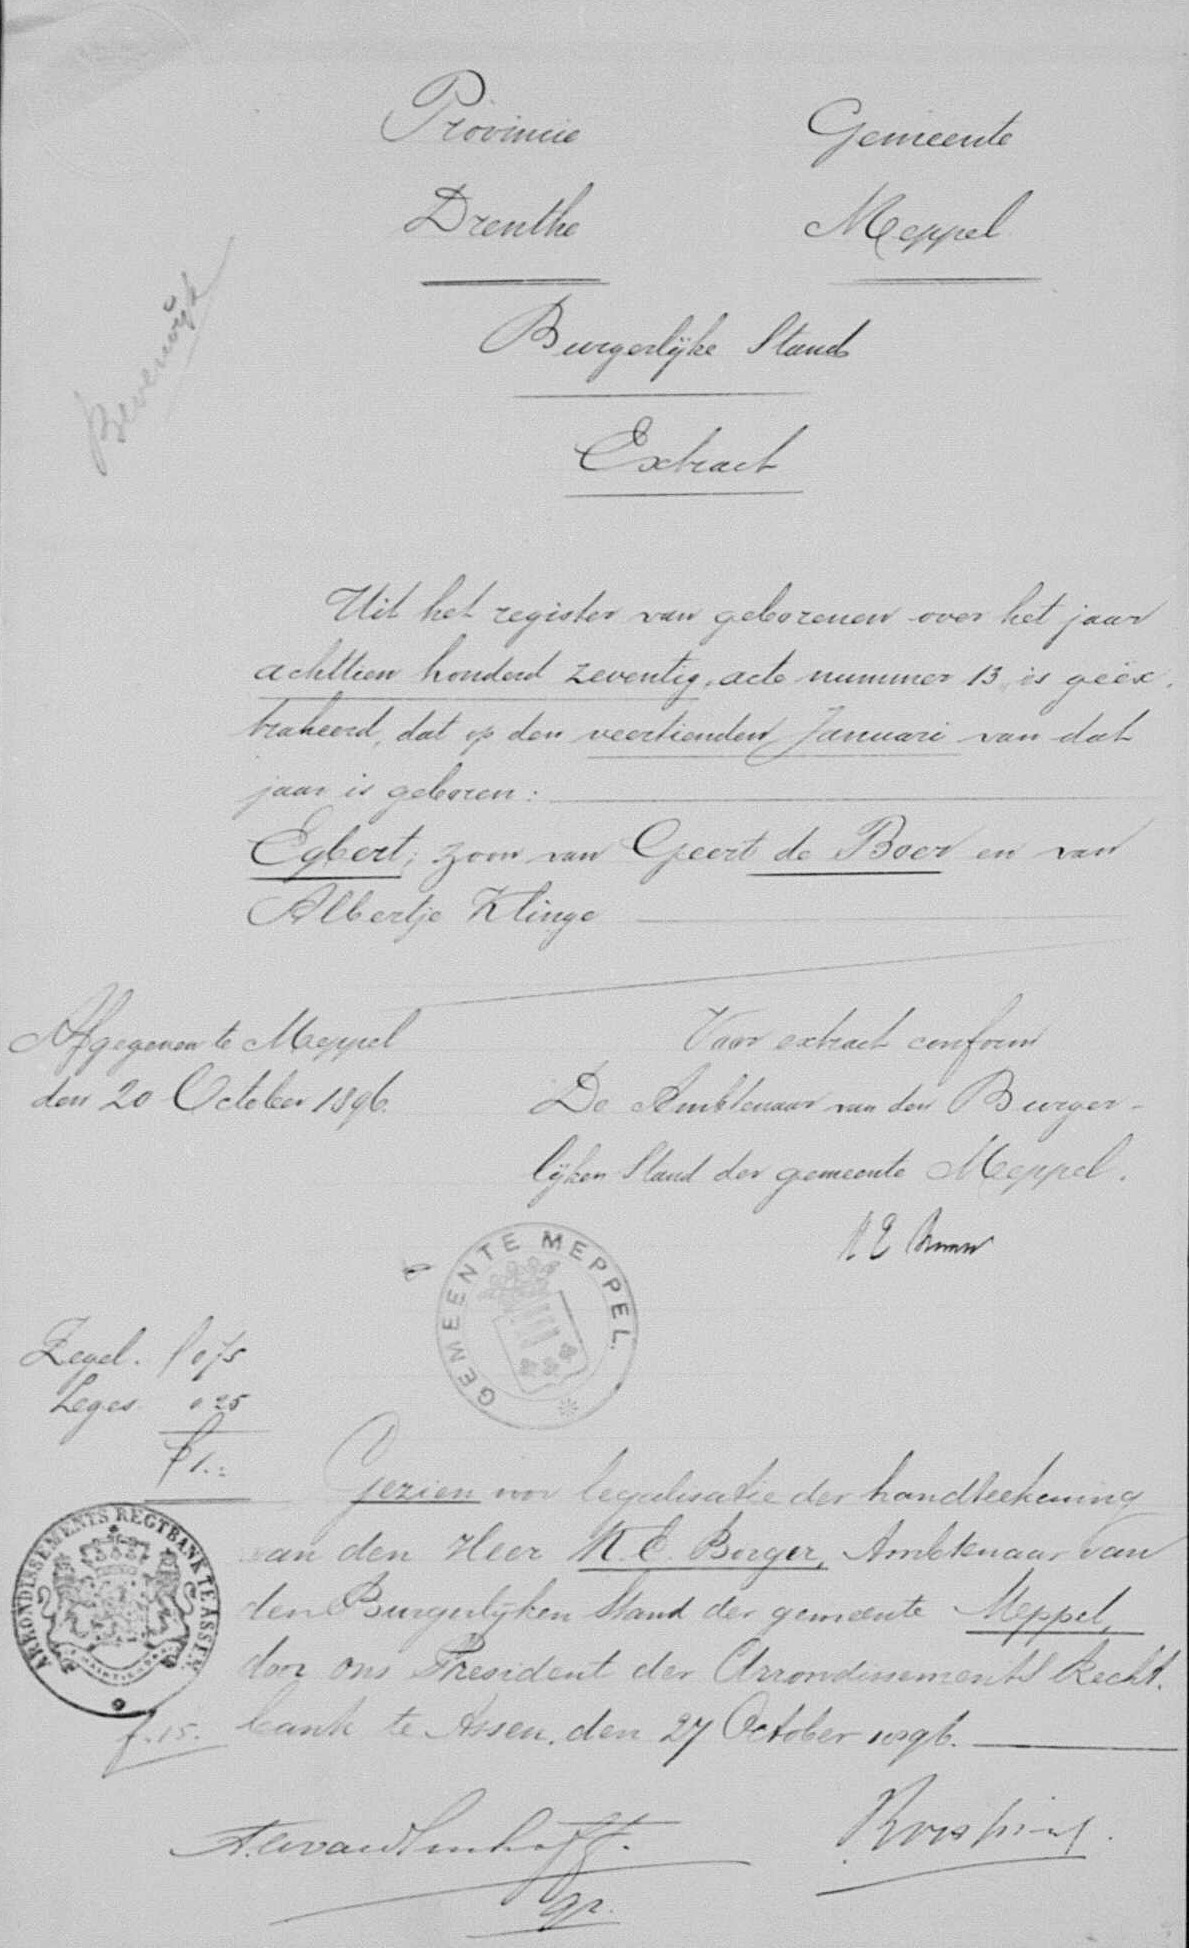 Provincie Gemeente
Drenthe Meppel
Beverwijk
Burgerlijke Stand
Extract
Uit het register van geborenen over het jaar
achttien honderd zeventig, acte nummer 13, is geëx-
traheerd, dat op den veertienden Januari van dat
jaar is geboren:
Egbert, zoon van Geert de Boer en van
Albertje Klinge
Afgegeven te Meppel
den 20 October 1896.
Voor extract conform
De Ambtenaar van den Burger-
lijken Stand der gemeente Meppel.
GEMEENTE MEPPEL.
Zegel. f 0,75
Leges 0,25
f 1.=
Gezien voor legalisatie der handteekening
van den Heer K. E. Borger, Ambtenaar van
den Burgerlijken Stand der gemeente Meppel,
door ons President der Arrondissements Recht-
bank te Assen, den 27 October 1896.
ARRONDISSEMENTS REGTBANK TE ASSEN.
f. 15.
gr.